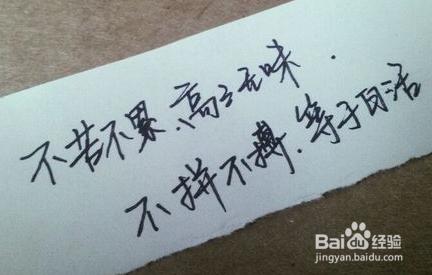 不苦不累、高三无味.
不拼不搏.等于白活
Baidu经验
jingyan.baidu.com